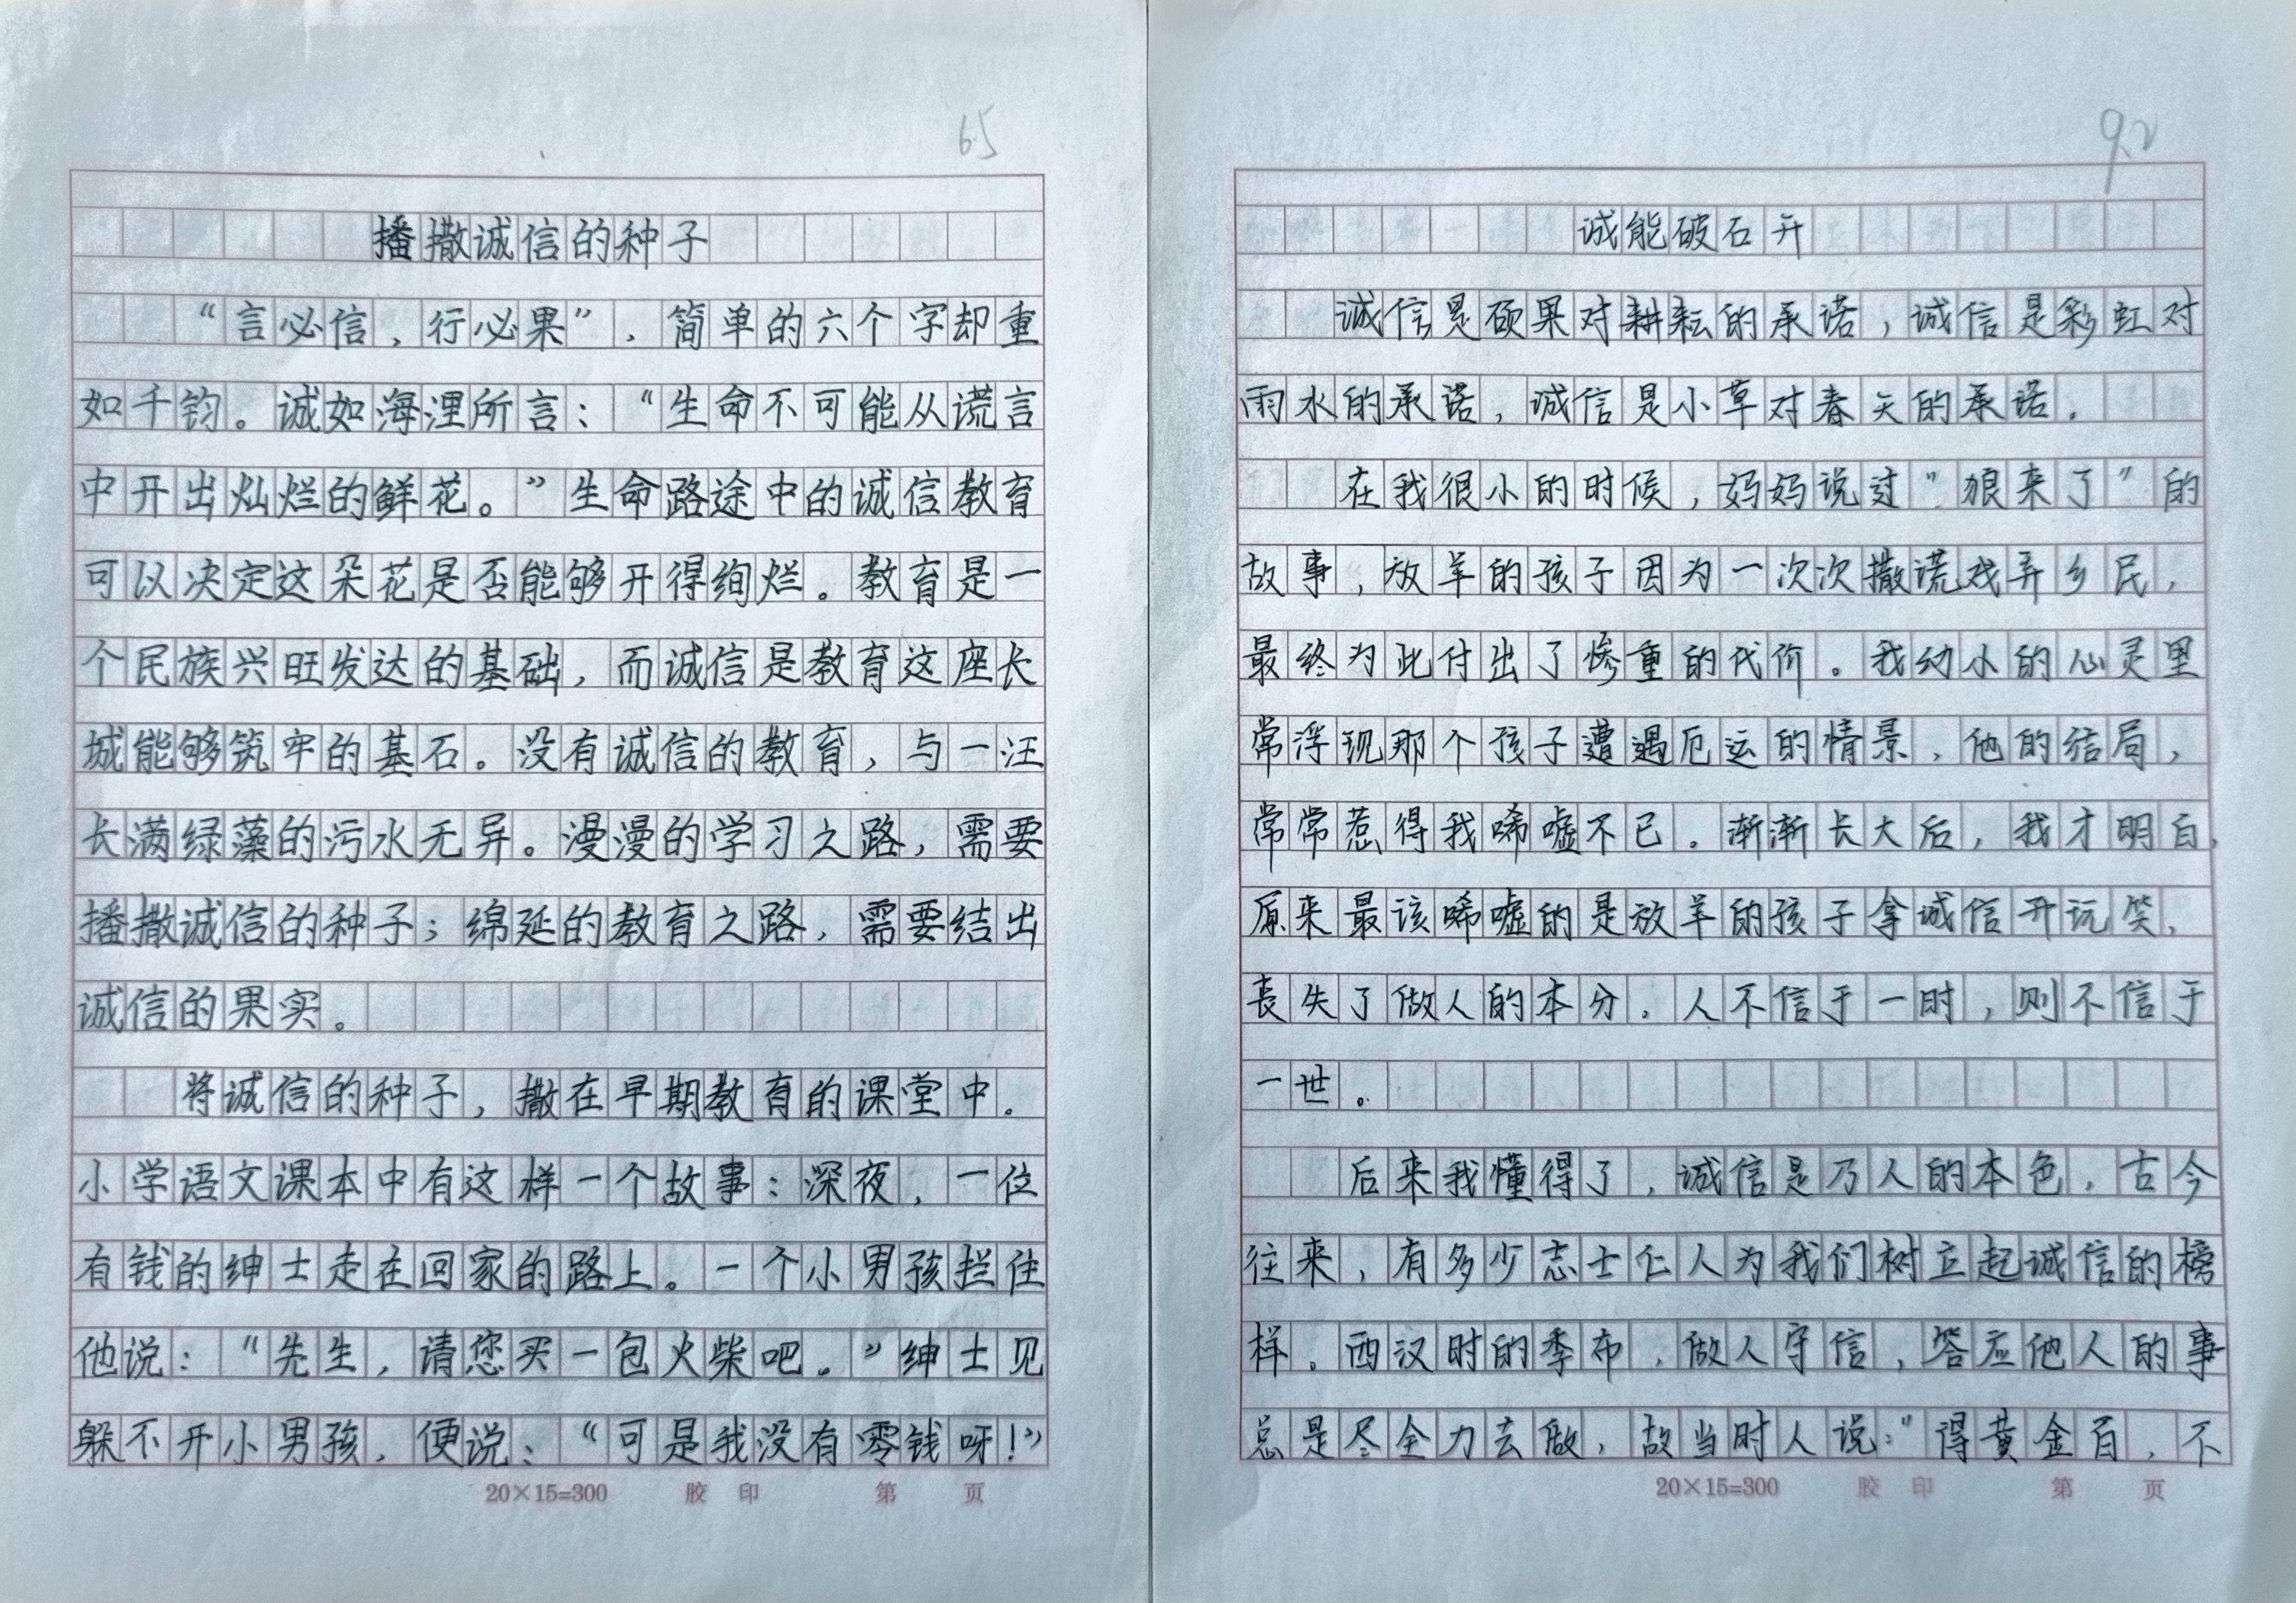 65
播撒诚信的种子
“言必信，行必果”，简单的六个字却重
如千钧。诚如海涅所言：“生命不可能从谎言
中开出灿烂的鲜花。”生命路途中的诚信教育
可以决定这朵花是否能够开得绚烂。教育是一
个民族兴旺发达的基础，而诚信是教育这座长
城能够筑牢的基石。没有诚信的教育，与一汪
长满绿藻的污水无异。漫漫的学习之路，需要
播撒诚信的种子；绵延的教育之路，需要结出
诚信的果实。
将诚信的种子，撒在早期教育的课堂中。
小学语文课本中有这样一个故事：深夜，一位
有钱的绅士走在回家的路上。一个小男孩拦住
他说：“先生，请您买一包火柴吧。”绅士见
躲不开小男孩，便说：“可是我没有零钱呀！”
20×15=300 胶 印 第 页
92
诚能破石开
诚信是硕果对耕耘的承诺，诚信是彩虹对
雨水的承诺，诚信是小草对春天的承诺。
在我很小的时候，妈妈说过“狼来了”的
故事，放羊的孩子因为一次次撒谎戏弄乡民，
最终为此付出了惨重的代价。我幼小的心灵里
常浮现那个孩子遭遇厄运的情景，他的结局，
常常惹得我唏嘘不已。渐渐长大后，我才明白，
原来最该唏嘘的是放羊的孩子拿诚信开玩笑，
丧失了做人的本分。人不信于一时，则不信于
一世。
后来我懂得了，诚信是乃人的本色。古今
往来，有多少志士仁人为我们树立起诚信的榜
样。西汉时的季布，做人守信，答应他人的事
总是尽全力去做，故当时人说：“得黄金百，不
20×15=300 胶 印 第 页